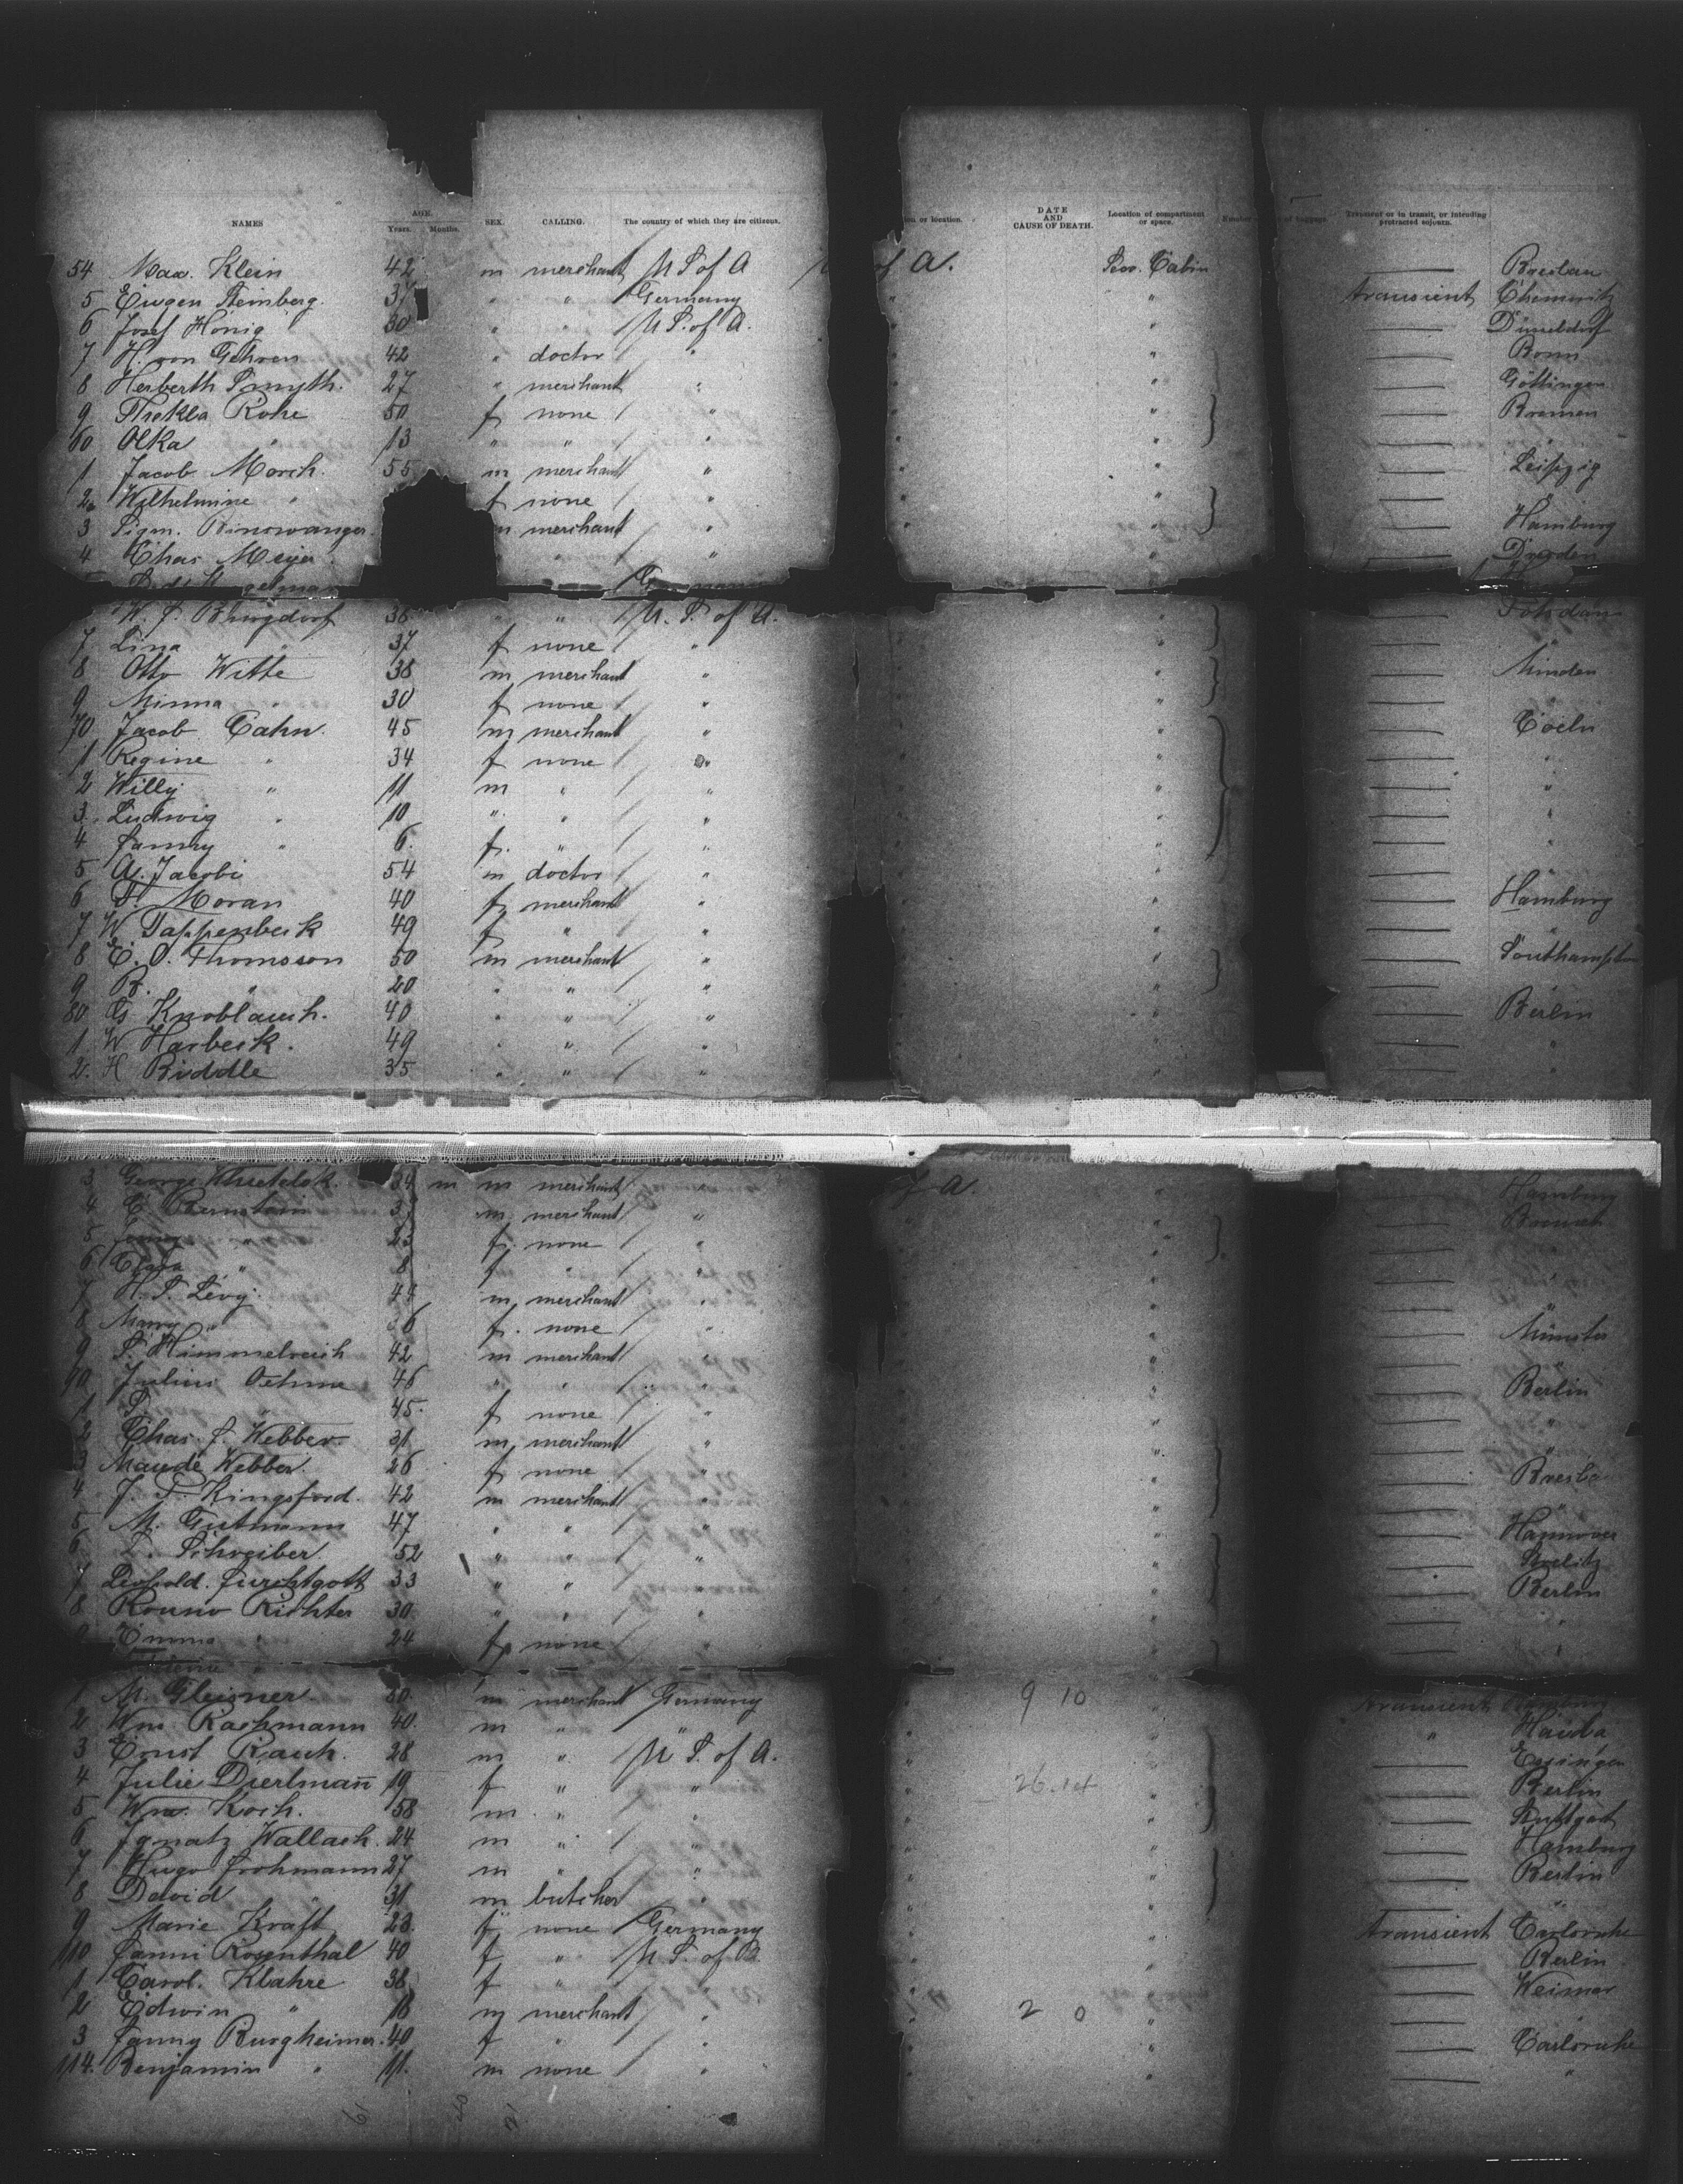 NAMES AGE. Years. Months. SEX. CALLING. The country of which they are citizens. ion or location. DATE AND CAUSE OF DEATH. Location of compartment or space. Number of baggage. Transient or in transit, or intending protracted sojourn.
54 Max. Klein 42 m merchant U. S. of A of A. Sec. Cabin — Breslau
5 Eugen Steinberg. 37 " " Germany " " transient Chemnitz
6 Josef Hönig 30 " " U. S. of A. " " — Düsseldorf
7 H. von Gehren 42 " doctor " " " — Bonn
8 Herberth Smyth. 27 " merchant " " " — Göttingen
9 Thekla Rohe 50 f none " " " — Bremen
60 Olka " 13 " " " " " — "
1 Jacob March. 55 m merchant " " " — Leipzig
2 Wilhelmine " f none " " " — "
3 Sigm. Binswanger m merchant " " " — Hamburg
4 Chas Meyer " " " " " — Dresden
Germany
W. F. Burgdorf 36 " " U. S. of A. " — Potsdam
7 Lina " 37 f none " " — "
8 Otto Witte 38 m merchant " " — Minden
9 Minna " 30 f none " " — "
70 Jacob Cahn. 45 m merchant " " — Coeln
1 Regine " 34 f none " " — "
2 Willy " 11 m " " " — "
3 Ludwig " 10 " " " " — "
4 Fanny " 6. f. " " " — "
5 A. Jacobi 54 m doctor " " — "
6 F. Moran 40 f merchant " " — Hamburg
7 W Tappenbeck 49 f " " " — "
8 E. O. Thomsson 50 m merchant " " — Southampton
9 B. " 20 " " " " — "
80 G Knoblauch. 40 " " " " — Berlin
1 W Harbeck. 49 " " " " — "
2. H Biddle 35 " " " " — "
3 George 34 m m merchant of A. " Hamburg
4 E Bernstein m. merchant " " —
5 " 23 f. none " " —
6 Clara " 8 f " " " — "
7 H. S. Levy. 44 m merchant " " — "
8 Mary " 36 f. none " " — Münster
9 S. Himmelreich 42 m merchant " " — "
90 Julius Oehme 46 " " " " — Berlin
1 S. " 45. f none " " — "
2 Chas. F. Webber. 31 m. merchant " " — "
3 Maude Webber. 26 f none " " — Bresla
4 J. F. Kingsford. 42 m merchant " " — "
5 M. Gutmann 47 " " " " — Hannover
6 Schreiber. 52 " " " " —
7 Leopold. Furchtgott 33 " " " " — Berlin
8 Bruno Richter 30 " " " " — "
9 Emma " 24 f none " " — "
1 M. Gleisner. m merchant Germany " 9 10 " transient Hamburg
2 Wm. Rachmann 40. m " " " " "
3 Ernst Rauh. 28 m " U. S. of A. " " —
4 Julie Dierlmañ 19 f " " " 26.14 " — Berlin
5 Wm. Koch. 58 m " " " " — Stuttgart
6 Ignatz Wallach. 24 m " " " " — Hamburg
7 Hugo Frohmann 27 m " " " " — Berlin
8 David " 31 m butcher " " " — "
9 Marie Kraft 23. f none Germany " " transient Carlsruhe
110 Fanni Rosenthal 40 f " U. S. of A. " " — Berlin
1 Carol. Klahre 38 f " " " " — Weimar
2 Edwin " 18 m merchant " " 2 0 " — "
3 Fanny Burgheimer. 40 f " " " " — Carlsruhe
114. Benjamin " 11. m none " " " — "